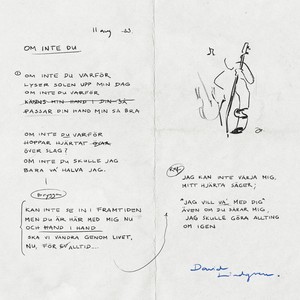 11 aug -23
OM INTE DU
① OM INTE DU VARFÖR
LYSER SOLEN UPP MIN DAG
OM INTE DU VARFÖR
KÄNNS MIN HAND I DIN SÅ
PASSAR DIN HAND MIN SÅ BRA
OM INTE DU VARFÖR
HOPPAR HJÄRTAT
ÖVER SLAG?
OM INTE DU SKULLE JAG
BARA VA' HALVA JAG.
KAN INTE SE IN I FRAMTIDEN
MEN DU ÄR HÄR MED MIG NU
OCH HAND I HAND
SKA VI VANDRA GENOM LIVET,
NU, FÖR ALLTID...
REF.
JAG KAN INTE VÄRJA MIG,
MITT HJÄRTA SÄGER;
"JAG VILL VA' MED DIG"
ÄVEN OM DU SÅRAR MIG,
JAG SKULLE GÖRA ALLTING
OM IGEN
David
Lindgren